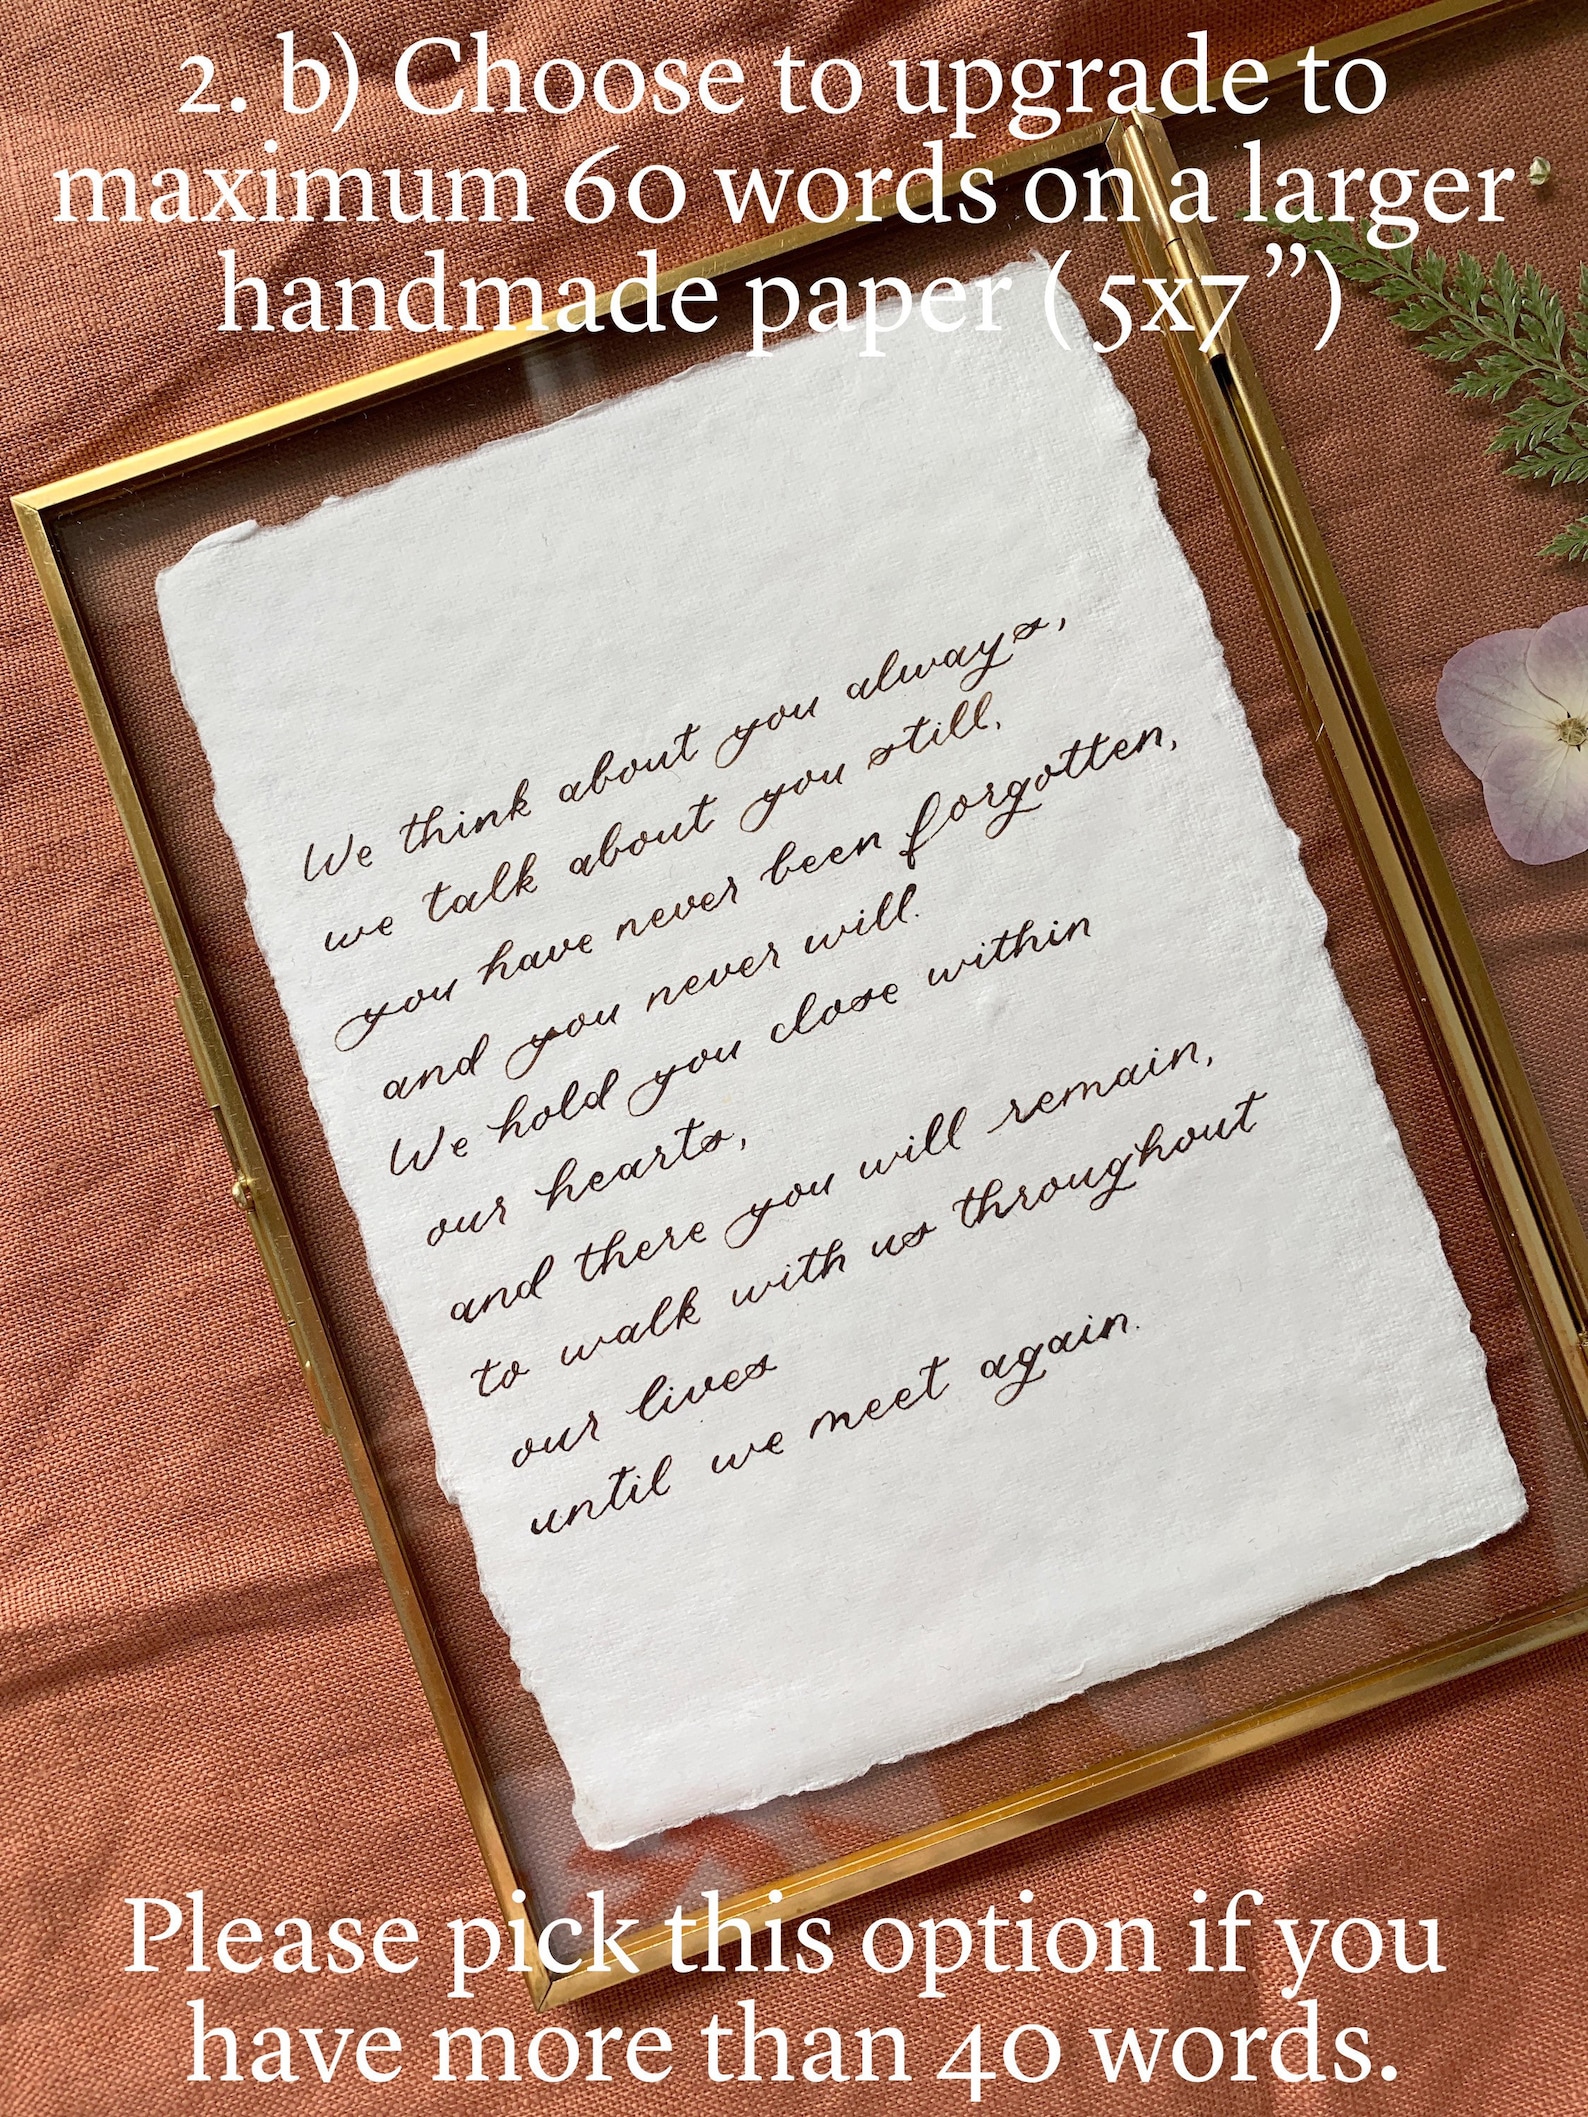 2. b) Choose to upgrade to
maximum 60 words on a larger
handmade paper ( 5x7”)
We think about you always,
we talk about you still,
you have never been forgotten,
and you never will.
We hold you close within
our hearts,
and there you will remain,
to walk with us throughout
our lives
until we meet again.
Please pick this option if you
have more than 40 words.